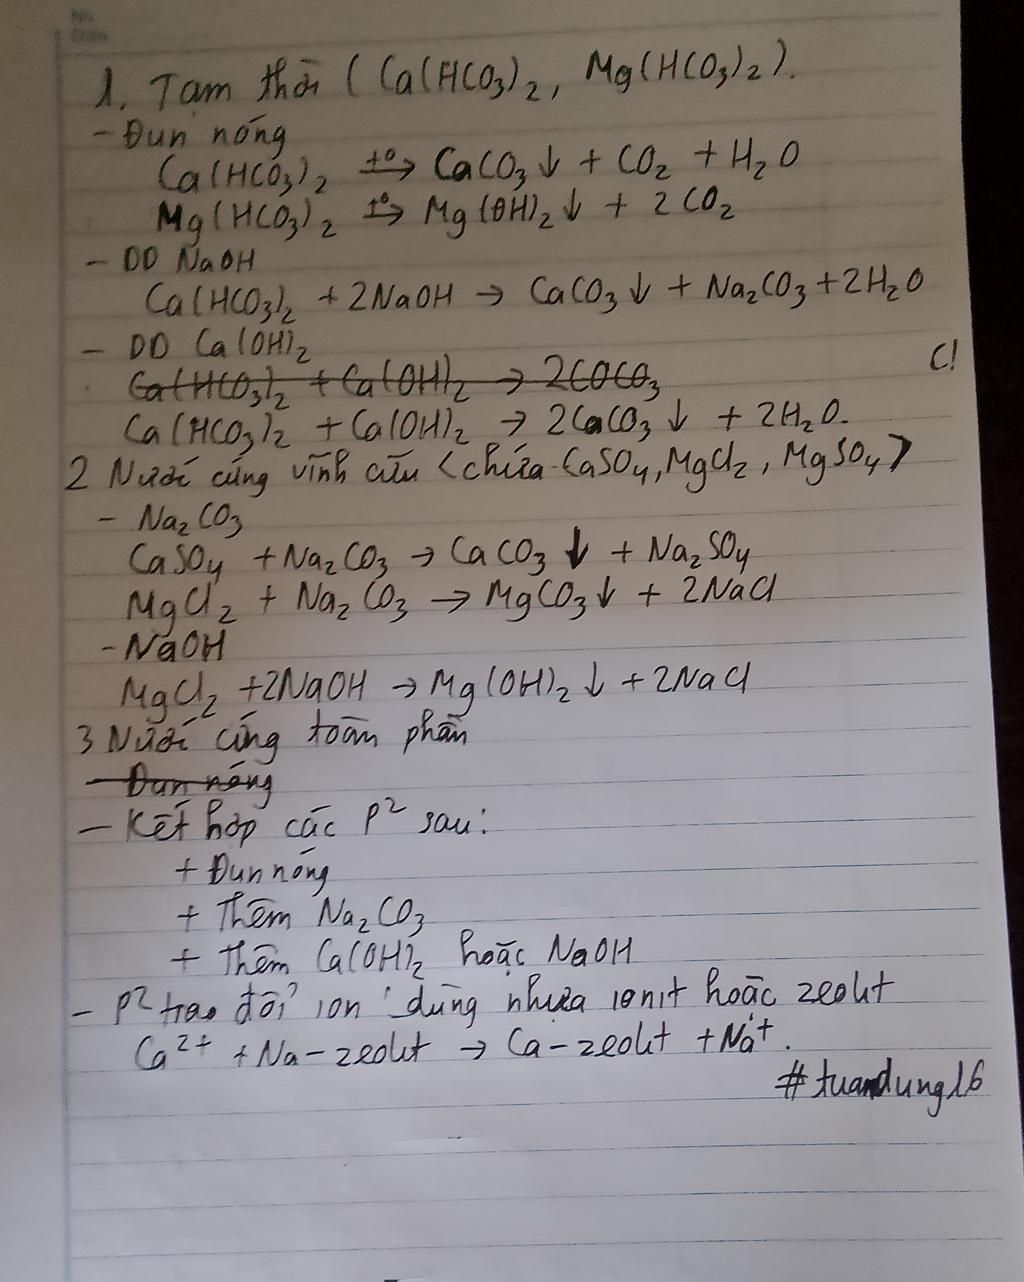 No.
Date
1. Tạm thời ( Ca(HCO3)2, Mg(HCO3)2).
- Đun nóng
Ca(HCO3)2 t°→ CaCO3↓ + CO2 + H2O
Mg(HCO3)2 t°→ Mg(OH)2↓ + 2CO2
- DD NaOH
Ca(HCO3)2 + 2NaOH → CaCO3↓ + Na2CO3 + 2H2O
- DD Ca(OH)2
C!
Ca(HCO3)2 + Ca(OH)2 → 2COCO3
Ca(HCO3)2 + Ca(OH)2 → 2CaCO3↓ + 2H2O.
2 Nước cứng vĩnh cửu <chứa CaSO4, MgCl2, MgSO4>
- Na2CO3
CaSO4 + Na2CO3 → CaCO3↓ + Na2SO4
MgCl2 + Na2CO3 → MgCO3↓ + 2NaCl
- NaOH
MgCl2 + 2NaOH → Mg(OH)2↓ + 2NaCl
3 Nước cứng toàn phần
- Đun nóng
- Kết hợp các P2 sau:
+ Đun nóng
+ Thêm Na2CO3
+ Thêm Ca(OH)2 hoặc NaOH
- P2 trao đổi ion : dùng nhựa ionit hoặc zeolit
Ca2+ + Na-zeolit → Ca-zeolit + Na+.
#tuandung16